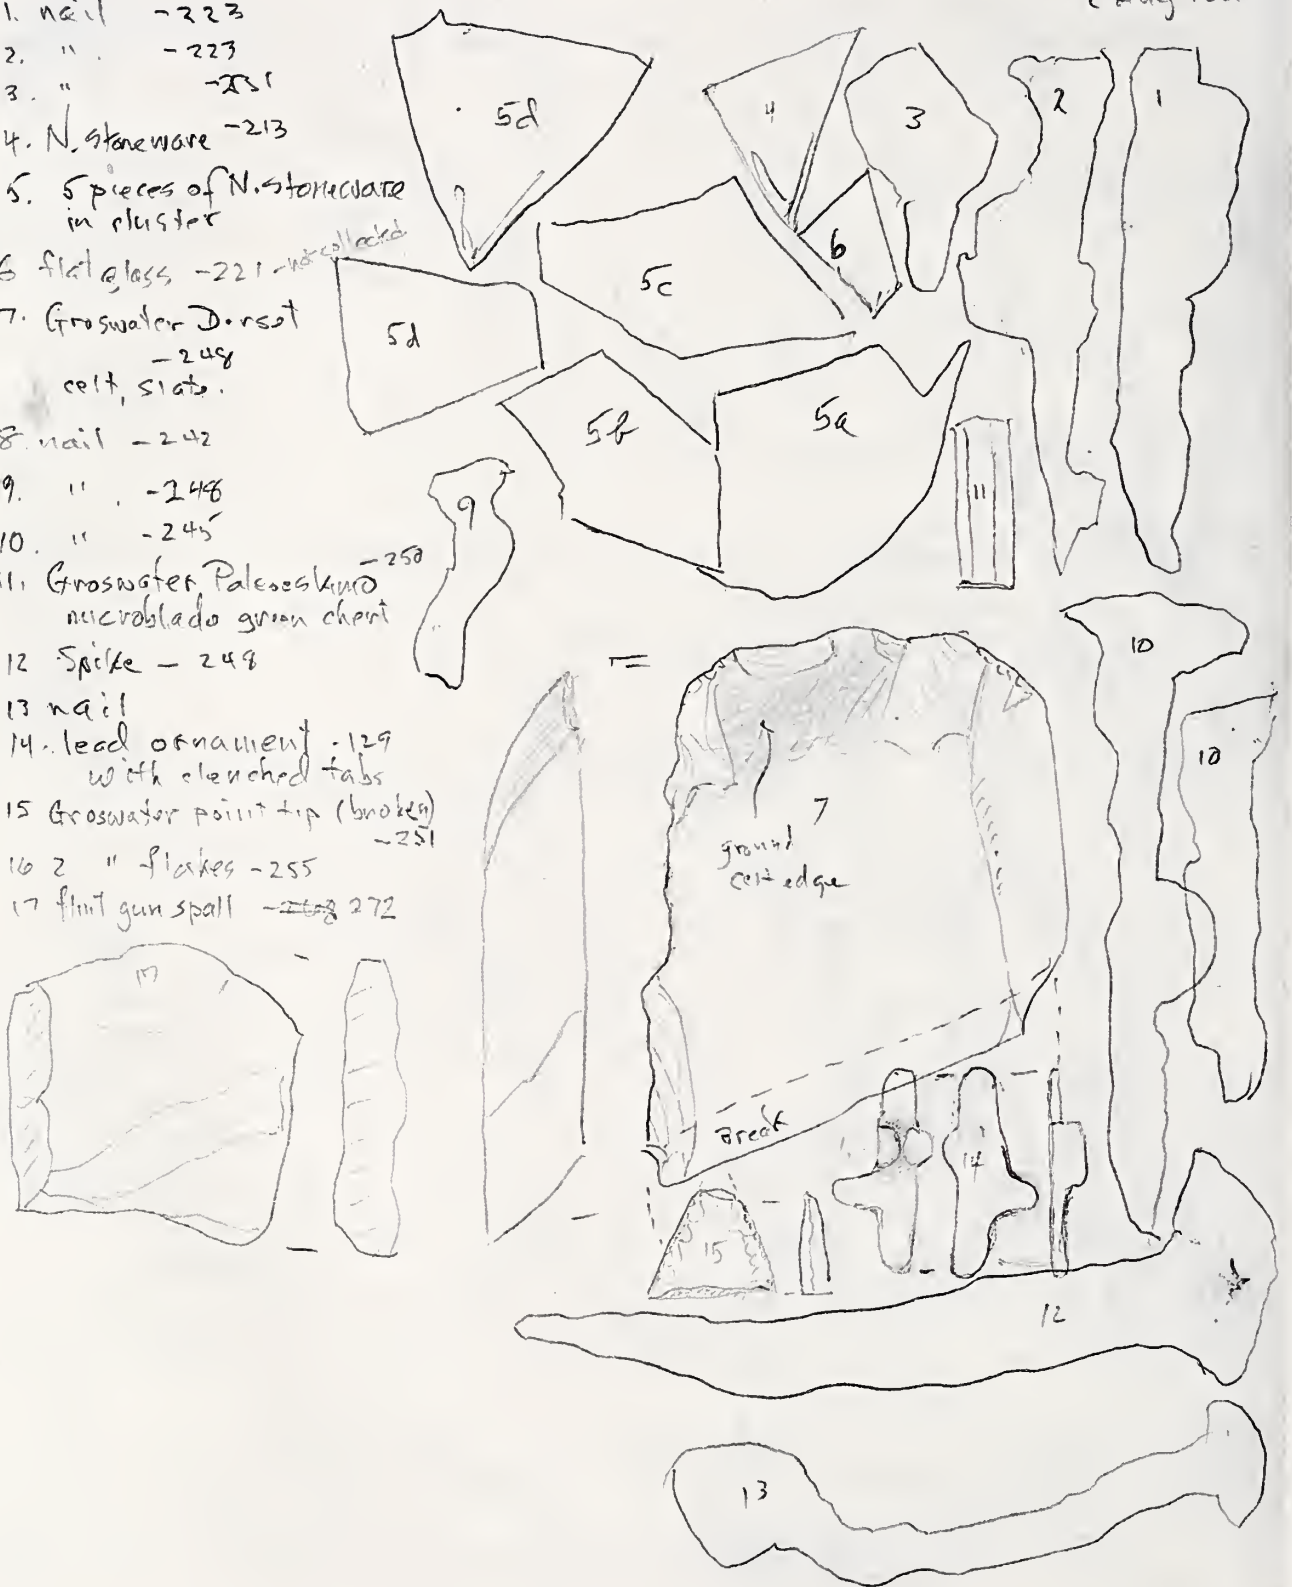 1. nail -223
2. " . -223
3. " -251
4. N. stoneware -213
5. 5 pieces of N. stoneware
in cluster
6 flat glass -221 - not collected
7. Groswater Dorset
-248
celt, slate.
8. nail -242
9. " . -248
10. " -245
11. Groswater Paleoeskimo -250
microblade green chert
12 Spike - 248
13 nail
14. lead ornament -129
with clenched tabs
15 Groswater point tip (broken)
-251
16 2 " flakes -255
17 flint gun spall 272
5d
4
3
2
1
5c
6
5d
5b
5a
11
9
10
10
7
ground
celt edge
17
Break
14
15
12
13